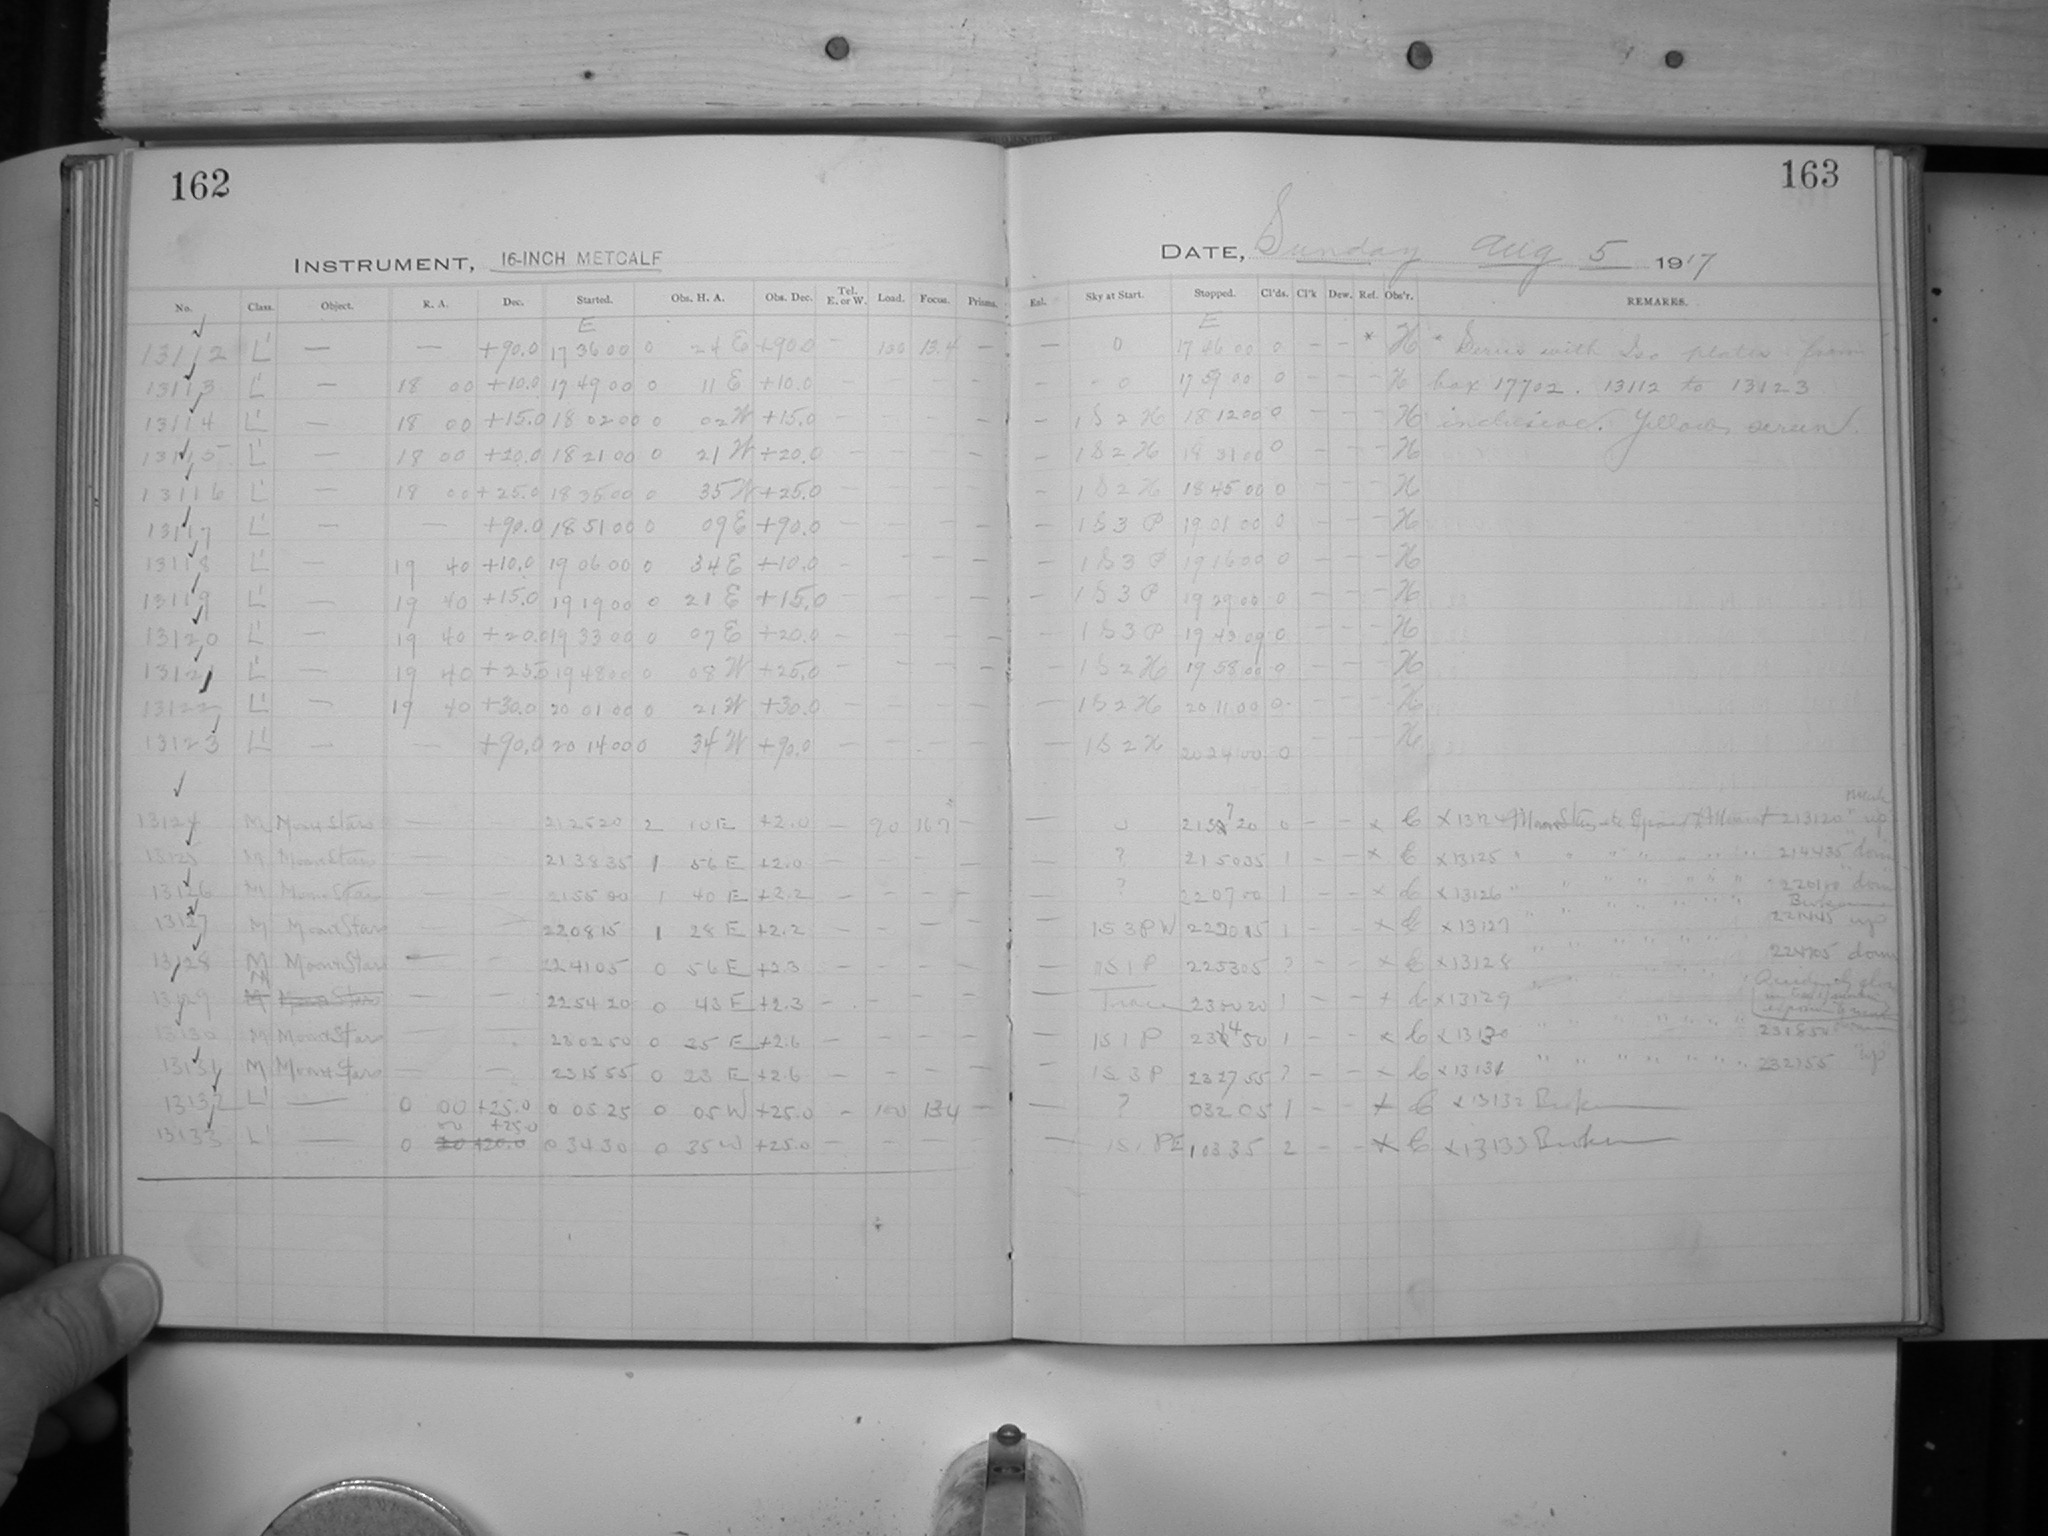 162
163
INSTRUMENT, 16-INCH METCALF
DATE, Sunday Aug 5 1917
No. Class. Object. R. A. Dec. Started. Obs. H. A. Obs. Dec. Tel. E. or W. Load. Focus. Prisms. Exl. Sky at Start. Stopped. Cl'ds. Cl'k Dew. Ref. Obs'r. REMARKS.
E E
13112 L' — — +90.0 17 36 00 0 24 E +90.0 — 100 13.4 — — 0 17 46 00 0 — — * H * Series with Iso plates from
13113 L' — 18 00 +10.0 17 49 00 0 11 E +10.0 — — — — — 0 17 59 00 0 — — — H box 17702. 13112 to 13123
13114 L' — 18 00 +15.0 18 02 00 0 02 W +15.0 — — — — — 1S2H 18 12 00 0 — — — H inclusive. Yellow screen.
13115 L' — 18 00 +20.0 18 21 00 0 21 W +20.0 — — — — — 1S2H 18 31 00 0 — — — H
13116 L' — 18 00 +25.0 18 35 00 0 35 W +25.0 — — — — — 1S2H 18 45 00 0 — — — H
13117 L' — — +90.0 18 51 00 0 09 E +90.0 — — — — — 1S3P 19 01 00 0 — — — H
13118 L' — 19 40 +10.0 19 06 00 0 34 E +10.0 — — — — — 1S3P 19 16 00 0 — — — H
13119 L' — 19 40 +15.0 19 19 00 0 21 E +15.0 — — — — — 1S3P 19 29 00 0 — — — H
13120 L' — 19 40 +20.0 19 33 00 0 07 E +20.0 — — — — — 1S3P 19 43 00 0 — — — H
13121 L' — 19 40 +25.0 19 48 00 0 08 W +25.0 — — — — — 1S2H 19 58 00 0 — — — H
13122 L' — 19 40 +30.0 20 01 00 0 21 W +30.0 — — — — — 1S2H 20 11 00 0 — — — H
13123 L' — — +90.0 20 14 00 0 34 W +90.0 — — — — — 1S2H 20 24 00 0 — — — H
13124 M Moon & Stars — — 21 25 20 2 10 E +2.0 — 90 16.7 — 0 20 0 — — x C x 13124 Moon & Stars 213120 "up
13125 M Moon & Stars — — 21 38 35 1 56 E +2.0 — — — — — ? 21 50 35 1 — — x C x 13125 " " " " " " 214435 "down
13126 M Moon & Stars — — 1 40 E +2.2 — — — — — ? 22 07 00 1 — — x C x 13126 " " " " " " "down
13127 M Moon & Stars — — 22 08 15 1 28 E +2.2 — — — — — 1S3PW 22 20 15 1 — — x C x 13127 " " " " " " 221445 up
13128 M Moon & Stars — — 22 41 05 0 56 E +2.3 — — — — — 1S1P 22 53 05 ? — — x C x 13128 " " " " " " 224705 down
13129 M — — 22 54 20 0 43 E +2.3 — — — — — Trace 23 00 20 1 — — x C x 13129
13130 M Moon & Stars — — 23 02 50 0 35 E +2.6 — — — — — 1S1P 23 14 50 1 — — x C x 13130 " " " " " " 231850
13131 M Moon & Stars — — 23 15 55 0 23 E +2.6 — — — — — 1S3P 23 27 55 ? — — x C x 13131 " " " " " " 232155 "up
13132 L' — 0 00 +25.0 0 05 25 0 05 W +25.0 — 100 13.4 — — ? 0 32 05 1 — — x C x 13132 Broken
00 +25.0
13133 L' — 0 20 +20.0 0 34 30 0 35 W +25.0 — — — — — 1S1PE 1 03 35 2 — — x C x 13133 Broken